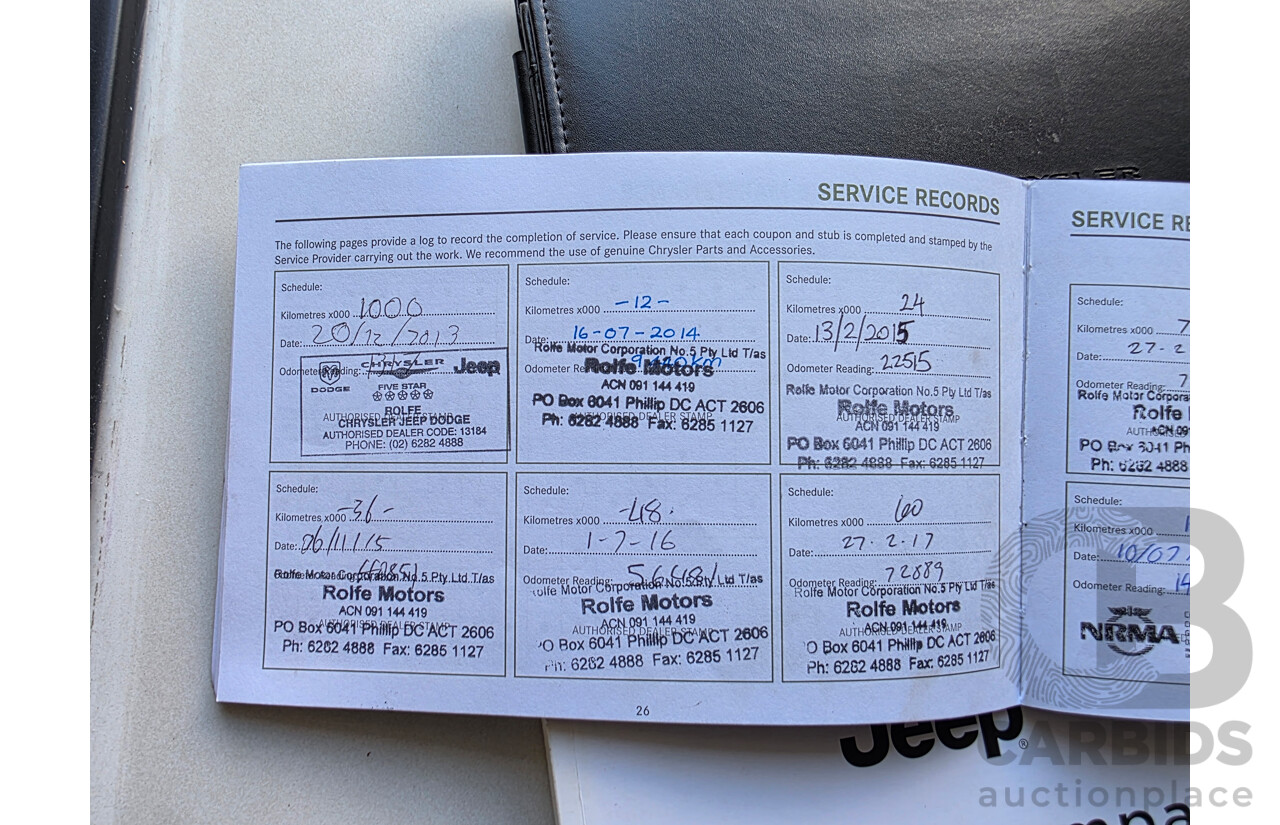 CHRYSLER
SERVICE RECORDS
The following pages provide a log to record the completion of service. Please ensure that each coupon and stub is completed and stamped by the
Service Provider carrying out the work. We recommend the use of genuine Chrysler Parts and Accessories.
Schedule:
Kilometres x000 1000
Date: 20/12/2013
Odometer Reading:
DODGE
CHRYSLER
Jeep
FIVE STAR
ROLFE
CHRYSLER JEEP DODGE
AUTHORISED DEALER STAMP
AUTHORISED DEALER CODE: 13184
PHONE: (02) 6282 4888
Schedule:
Kilometres x000 -12-
Date: 16-07-2014
Rolfe Motor Corporation No.5 Pty Ltd T/as
Odometer Re
Rolfe Motors
ACN 091 144 419
PO Box 6041 Phillip DC ACT 2606
AUTHORISED DEALER STAMP
Ph: 6282 4888 Fax: 6285 1127
Schedule:
Kilometres x000 24
Date: 13/2/2015
Odometer Reading: 22515
Rolfe Motor Corporation No.5 Pty Ltd T/as
Rolfe Motors
AUTHORISED DEALER STAMP
ACN 091 144 419
PO Box 6041 Phillip DC ACT 2606
Ph: 6282 4888 Fax: 6285 1127
Schedule:
Kilometres x000 -36-
Date: 06/11/15
Rolfe Motor Corporation No.5 Pty Ltd T/as
Rolfe Motors
ACN 091 144 419
AUTHORISED DEALER STAMP
PO Box 6041 Phillip DC ACT 2606
Ph: 6282 4888 Fax: 6285 1127
Schedule:
Kilometres x000 -48-
Date: 1-7-16
Odometer Reading:
Rolfe Motor Corporation No.5 Pty Ltd T/as
Rolfe Motors
ACN 091 144 419
AUTHORISED DEALER STAMP
PO Box 6041 Phillip DC ACT 2606
Ph: 6282 4888 Fax: 6285 1127
Schedule:
Kilometres x000 60
Date: 27.2.17
Odometer Reading: 72889
Rolfe Motor Corporation No.5 Pty Ltd T/as
Rolfe Motors
ACN 091 144 419
AUTHORISED DEALER STAMP
PO Box 6041 Phillip DC ACT 2606
Ph: 6282 4888 Fax: 6285 1127
26
SERVICE RE
Schedule:
Kilometres x000 7
Date: 27-2
Odometer Reading: 7
Rolfe Motor Corpora
Rolfe
ACN 09
PO Box 6041 Ph
Ph: 6282 4888
Schedule:
Kilometres x000 1
Date: 10/07
Odometer Reading: 14
NRMA
Jeep
CARBIDS
auctionplace